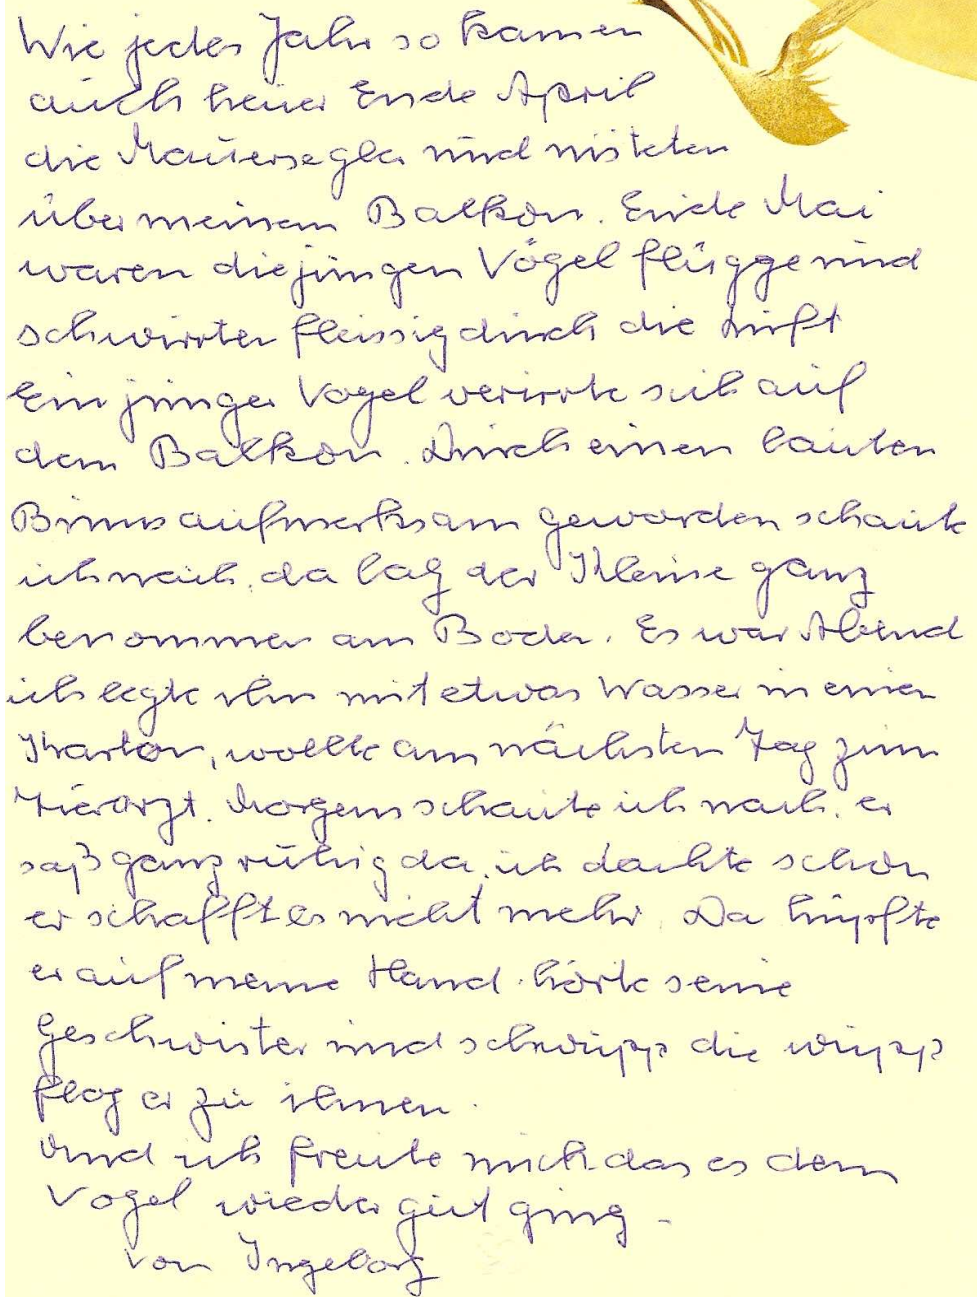 Wie jedes Jahr so kamen
auch heuer Ende April
die Mauersegler und nisteten
über meinem Balkon. Ende Mai
waren die jungen Vögel flügge und
schwirrten fleissig durch die Luft
Ein junger Vogel verirrte sich auf
dem Balkon. Durch einen lauten
Bums aufmerksam geworden schaute
ich nach, da lag der Kleine ganz
benommen am Boden. Es war Abend
ich legte ihn mit etwas Wasser in einen
Karton, wollte am nächsten Tag zum
Tierarzt. Morgens schaute ich nach, er
saß ganz ruhig da, ich dachte schon
er schafft es nicht mehr. Da hüpfte
er auf meine Hand, hörte seine
Geschwister und schwupp die wupp
flog er zu ihnen.
Und ich freute mich das es dem
Vogel wieder gut ging.
von Ingeborg